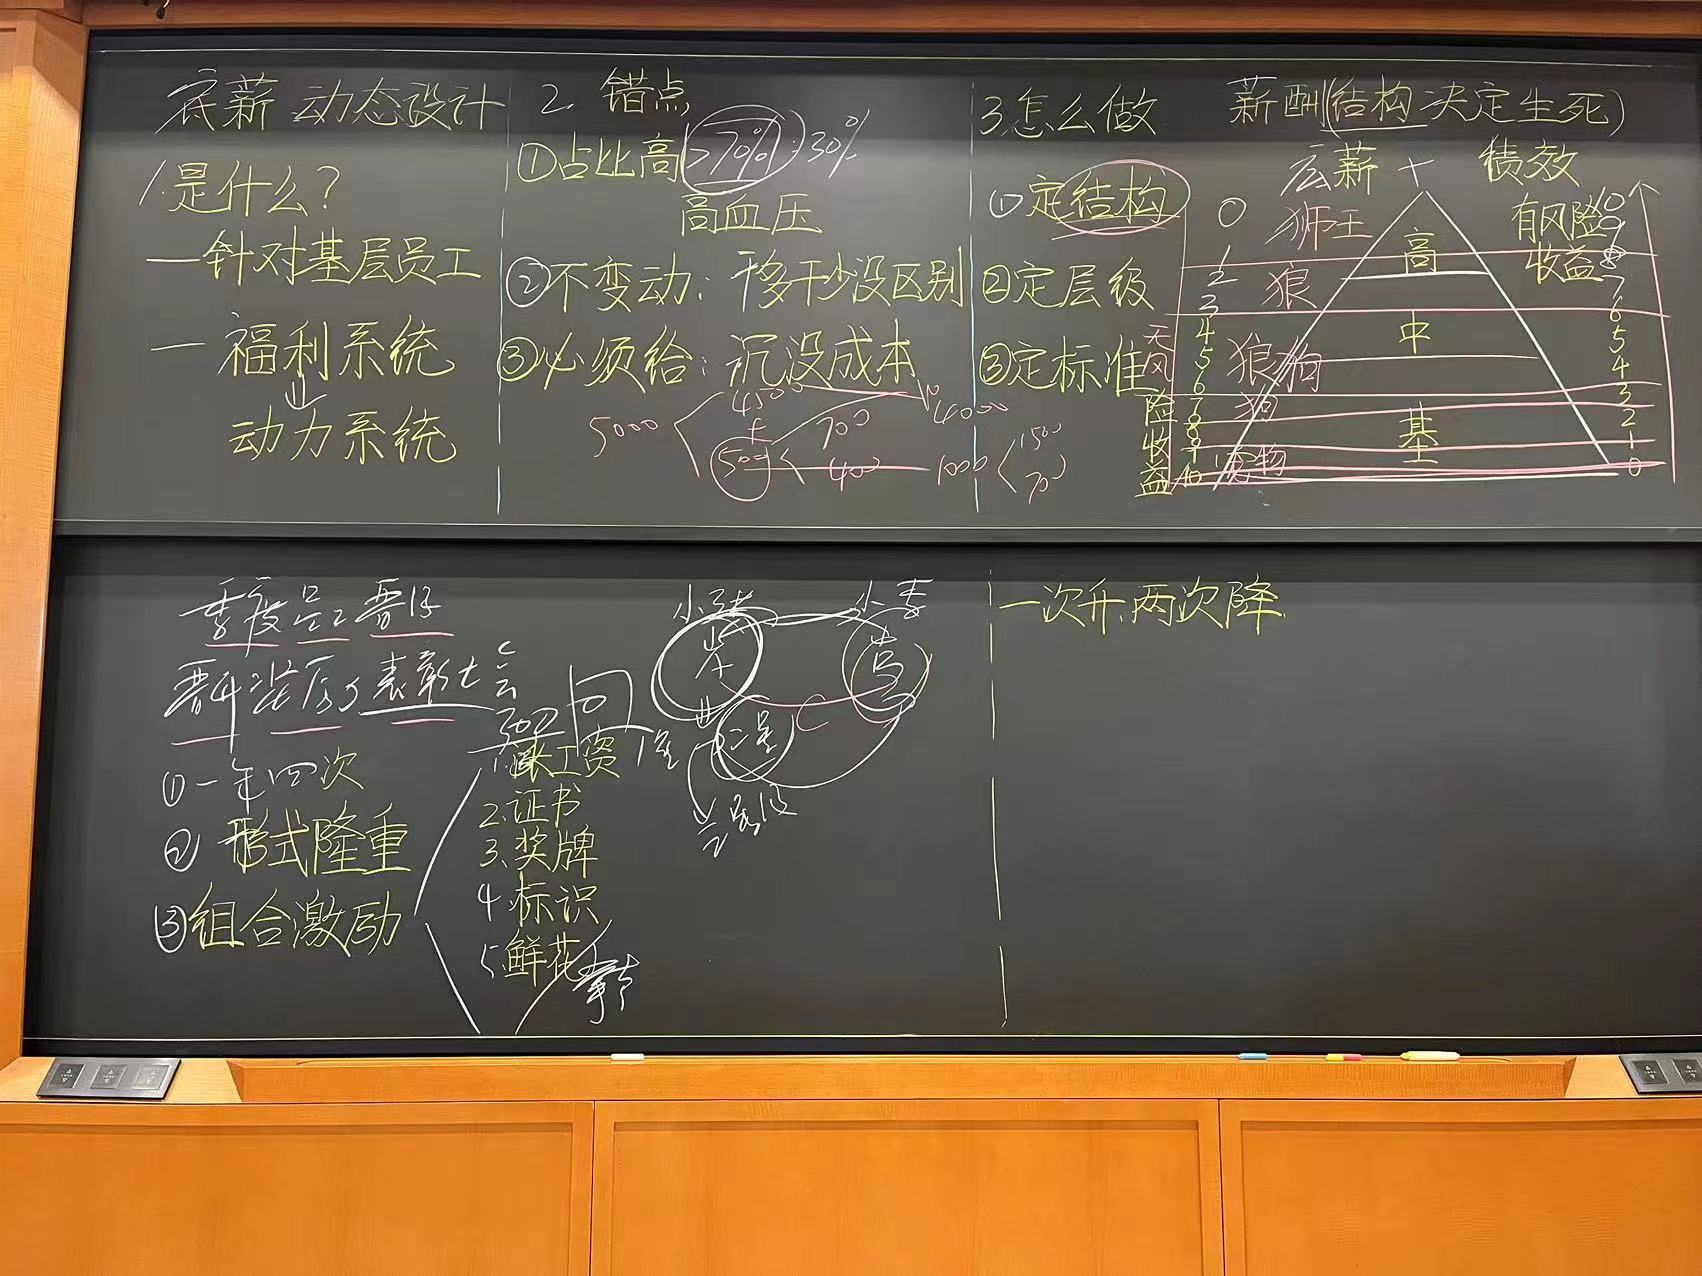 底薪 动态设计
1.是什么?
—针对基层员工
— 福利系统
↓
动力系统
2. 错点
①占比高(>70%):30%
高血压
②不变动: 干多干少没区别
③必须给: 沉没成本
5000
4500
+
500
700
400
4000
1000
1500
70
3.怎么做
①定结构
②定层级
③定标准
薪酬(结构决定生死)
底薪 + 绩效
无风险收益
0
1
2
3
4
5
6
7
8
9
10
狮王
狼
狼狗
狗
宠物
高
中
基
有风险
收益
10
9
8
7
6
5
4
3
2
1
0
季度员工晋升
表彰大会
①一年四次
②形式隆重
③组合激励
1.涨工资
2.证书
3.奖牌
4.标识
5.鲜花
小李
二星
一次升,两次降